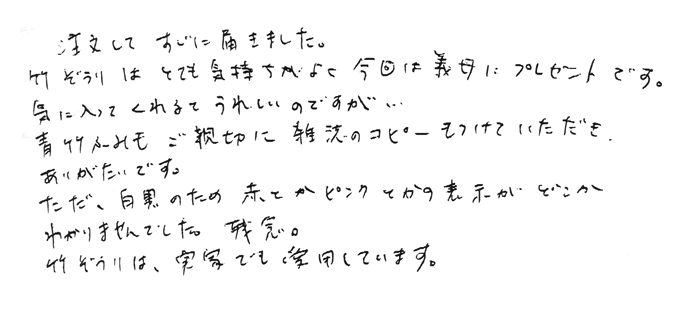 注文して すぐに届きました。
竹ぞうりはとても気持ちがよく今回は義母にプレゼントです。
気に入ってくれるとうれしいのですが…
青竹ふみもご親切に雑誌のコピーもつけていただき、
ありがたいです。
ただ、白黒のため赤とかピンクとかの表示がどこか
わかりませんでした。残念。
竹ぞうりは、実家でも愛用しています。